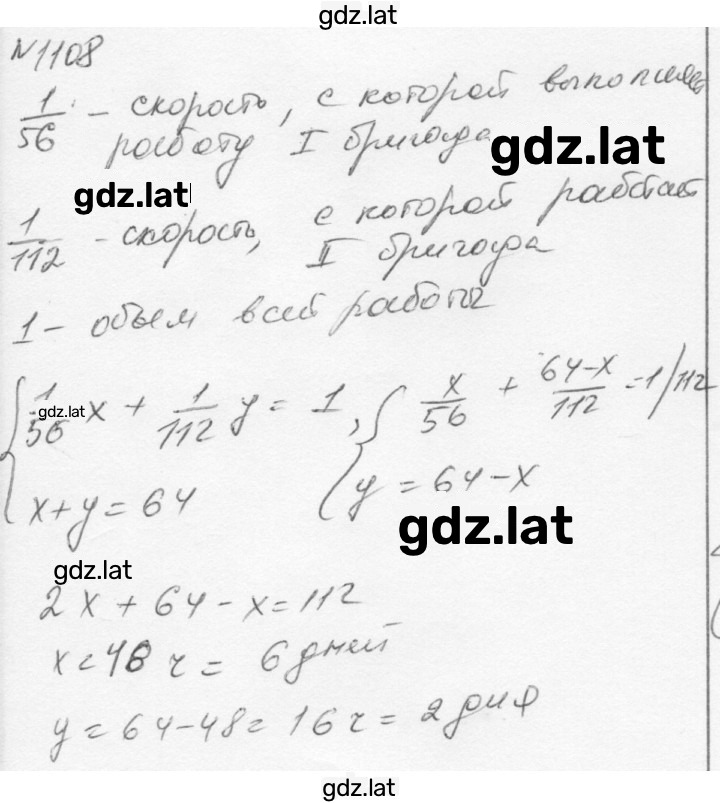 gdz.lat
№1108
1/56 - скорость, с которой выполняет
работу I бригада
gdz.lat
gdz.lat
1/112 - скорость, с которой работает
II бригада
1 - объем всей работы
{ 1/56 x + 1/112 y = 1, { x/56 + 64-x/112 = 1 /112
gdz.lat
x+y=64 y = 64-x
gdz.lat
gdz.lat
2x + 64 - x = 112
x = 48 ч = 6 дней
y = 64-48 = 16 ч = 2 дня
gdz.lat